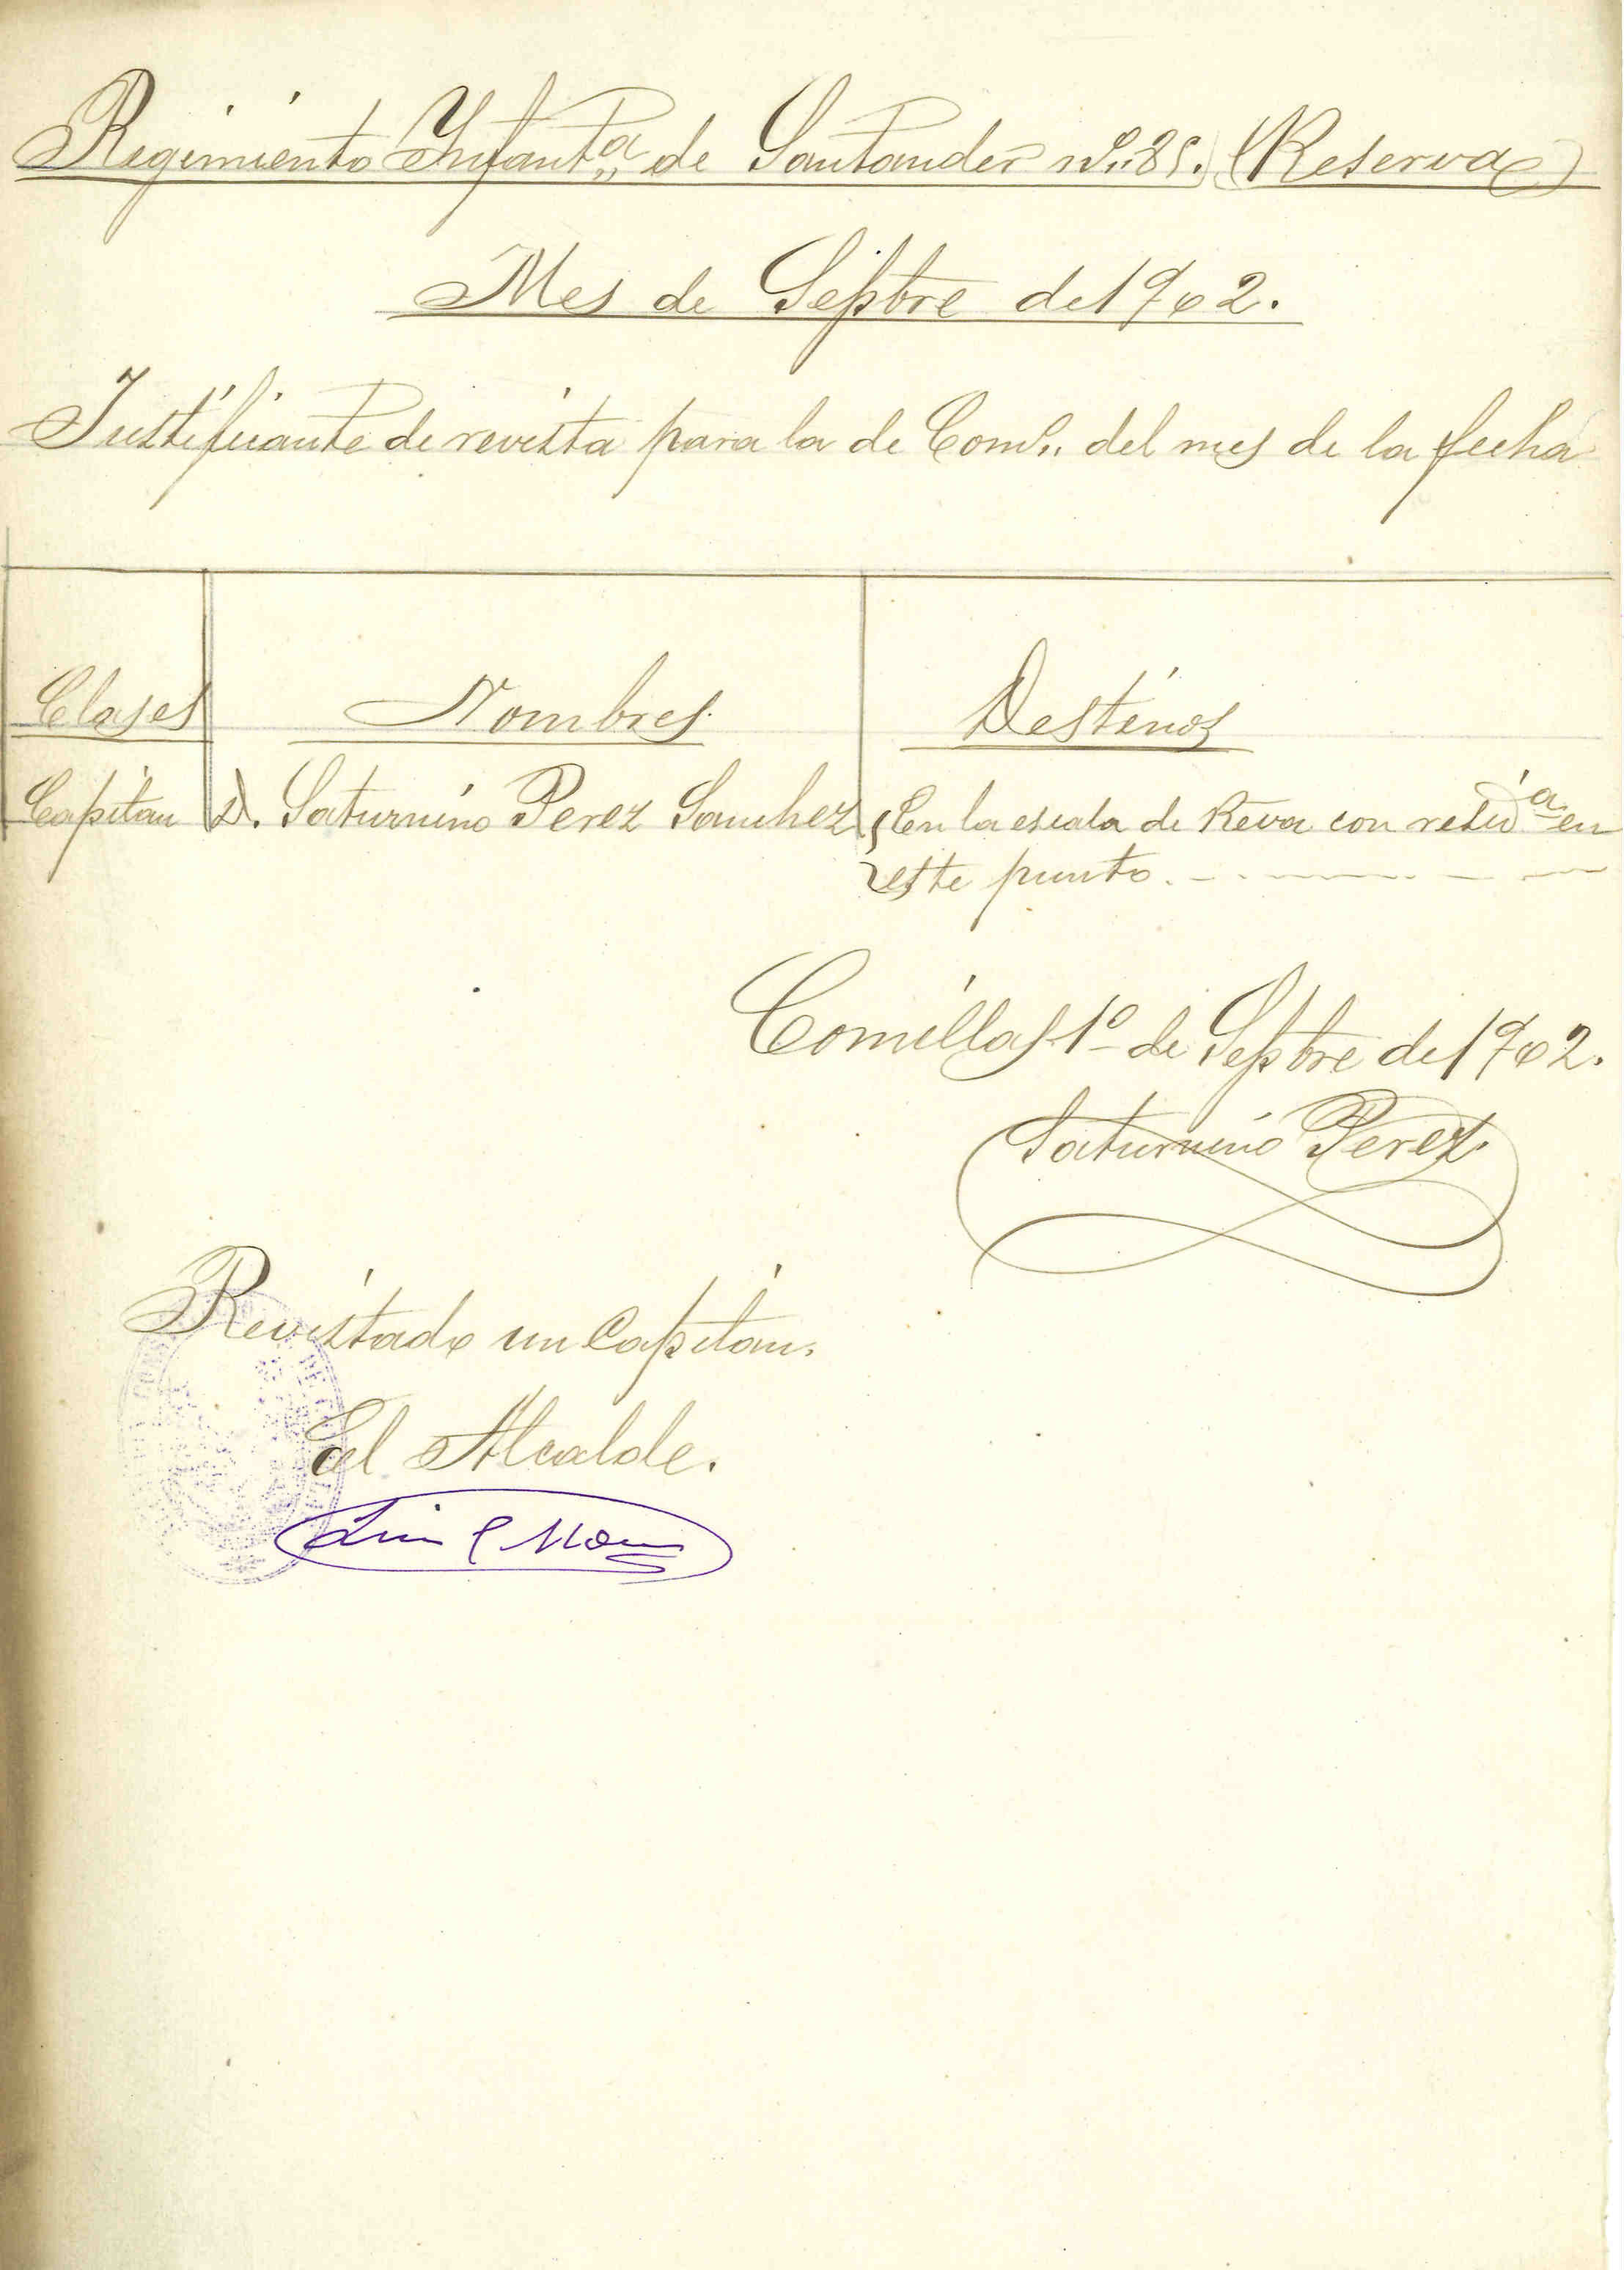 Regimiento Ynfant.ª de Santander nº 85. (Reserva)
Mes de Septbre de 1902.
Justificante de revista para la de Com.º del mes de la fecha
Clases Nombres Destinos
Capitan D. Saturnino Perez Sanchez En la escala de Reva con resid.ª en
este punto.
Comillas 1º de Septbre de 1902.
Saturnino Perez
Revistado un Capitan.
El Alcalde.